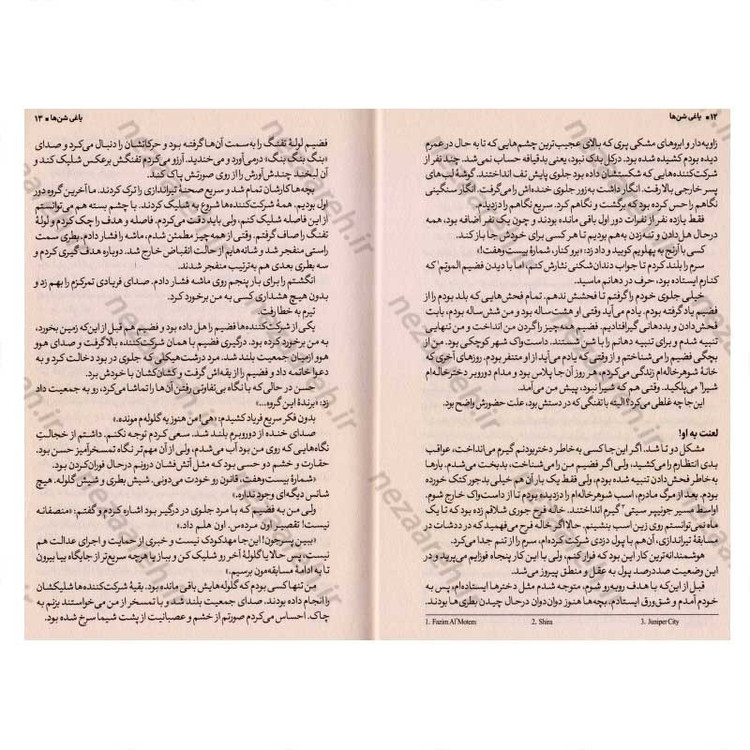 ۱۲ • یاغی شن‌ها
زاویه‌دار و ابروهای مشکی پری که بالای عجیب‌ترین چشم‌هایی که تا به حال در عمرم
دیده بودم کشیده شده بود. درکل بدک نبود، یعنی بدقیافه حساب نمی‌شد. چند نفر از
شرکت‌کننده‌هایی که شکستشان داده بود جلوی پایش تف انداختند. گوشهٔ لب‌های
پسر خارجی بالا رفت. انگار داشت به‌زور جلوی خنده‌اش را می‌گرفت. انگار سنگینی
نگاهم را حس کرده بود که برگشت و نگاهم کرد. سریع نگاهم را دزدیدم.
فقط یازده نفر از نفرات دور اول باقی مانده بودند و چون یک نفر اضافه بود، همه
درحال هل‌دادن و تنه‌زدن به‌هم بودیم تا هر کسی برای خودش جا باز کند.
کسی با آرنج به پهلویم کوبید و داد زد: «برو کنار، شمارهٔ بیست‌وهفت!»
سرم را بلند کردم تا جواب دندان‌شکنی نثارش کنم، اما با دیدن فضیم الموتم¹ که
کنارم ایستاده بود، حرف در دهانم ماسید.
خیلی جلوی خودم را گرفتم تا فحشش ندهم. تمام فحش‌هایی که بلد بودم را از
فضیم یاد گرفته بودم. یادم می‌آید وقتی او هشت‌ساله بود و من شش ساله بودم، بابت
فحش‌دادن و بددهانی گیر افتادیم. فضیم همه‌چیز را گردن من انداخت و من تنهایی
تنبیه شدم و برای تنبیه دهانم را با شن شستند. داست‌واک شهر کوچکی بود. من از
بچگی فضیم را می‌شناختم و از وقتی که یادم می‌آید از او متنفر بودم. روزهای آخری که
خانهٔ شوهرخاله‌ام زندگی می‌کردم، هر روز آن جا پلاس بود و مدام دوروبر دخترخاله‌ام
شیرا² می‌پلکید. وقتی هم که شیرا نبود، پیش من می‌آمد.
این‌جا چه غلطی می‌کرد؟ البته با تفنگی که در دستش بود، علت حضورش واضح بود.
لعنت به او!
مشکل دو تا شد. اگر این‌جا کسی به‌خاطر دختربودنم گیرم می‌انداخت، عواقب
بدی انتظارم را می‌کشید، ولی اگر فضیم من را می‌شناخت، بدبخت می‌شدم. بارها
به‌خاطر فحش‌دادن تنبیه شده بودم، ولی فقط یک بار آن هم خیلی بدجور کتک خورده
بودم. بعد از مرگ مادرم، اسب شوهرخاله‌ام را دزدیده بودم تا از داست‌واک خارج شوم.
اواسط مسیر جونیپر سیتی³ گیرم انداختند. خاله فرح جوری شلاقم زده بود که تا یک
ماه نمی‌توانستم روی زین اسب بنشینم. حالا اگر خاله فرح می‌فهمید که در ددشات در
مسابقهٔ تیراندازی، آن‌هم با پول دزدی شرکت کرده‌ام، سرم را از تنم جدا می‌کرد.
هوشمندانه‌ترین کار این بود که فرار کنم، ولی با این کار پنجاه فوزایم می‌پرید و در
این وضعیت صددرصد پول به عقل و منطق پیروز می‌شد.
قبل از این‌که با هدف روبه‌رو شوم، متوجه شدم مثل دخترها ایستاده‌ام، پس به
خودم آمدم و شق‌ورق ایستادم. بچه‌ها هنوز دوان‌دوان درحال چیدن بطری‌ها بودند.
1. Fazim Al'Motem
2. Shira
3. Juniper City
یاغی شن‌ها • ۱۳
فضیم لولهٔ تفنگ را به‌سمت آن‌ها گرفته بود و حرکاتشان را دنبال می‌کرد و صدای
«بنگ بنگ بنگ» درمی‌آورد و می‌خندید. آرزو می‌کردم تفنگش برعکس شلیک کند و
آن لبخند چندش‌آورش را از روی صورتش پاک کند.
بچه‌ها کارشان تمام شد و سریع صحنهٔ تیراندازی را ترک کردند. ما آخرین گروه دور
اول بودیم. همهٔ شرکت‌کننده‌ها شروع به شلیک کردند. با چشم بسته هم می‌توانستم
از این فاصله شلیک کنم، ولی باید دقت می‌کردم. فاصله و هدف را چک کردم و لولهٔ
تفنگ را صاف گرفتم. وقتی از همه‌چیز مطمئن شدم، ماشه را فشار دادم. بطری سمت
راستی منفجر شد و شانه‌هایم از حالت انقباض خارج شد. دوباره هدف‌گیری کردم و
سه بطری بعدی هم به‌ترتیب منفجر شدند.
انگشتم را برای بار پنجم روی ماشه فشار دادم. صدای فریادی تمرکزم را بهم زد و
بدون هیچ هشداری کسی به من برخورد کرد.
تیرم به خطا رفت.
یکی از شرکت‌کننده‌ها فضیم را هل داده بود و فضیم هم قبل از این‌که زمین بخورد،
به من برخورد کرده بود. درگیری فضیم با همان شرکت‌کننده بالا گرفت و صدای هوو
هوو از میان جمعیت بلند شد. مرد درشت‌هیکلی که جلوی در بود دخالت کرد و به
دعوا خاتمه داد و فضیم را از یقه‌اش گرفت و کشان‌کشان با خودش برد.
حسن در حالی که با نگاه بی‌تفاوتی رفتن آن‌ها را تماشا می‌کرد، رو به جمعیت داد
زد: «برندهٔ این گروه...»
بدون فکر سریع فریاد کشیدم: «هی! من هنوز یه گلوله‌م مونده.»
صدای خنده از دوروبرم بلند شد. سعی کردم توجه نکنم. داشتم از خجالتِ
نگاه‌هایی که روی من بود آب می‌شدم، ولی از آن مهم‌تر نگاه تمسخرآمیز حسن بود.
حقارت و خشم دو حسی بود که مثل آتش‌فشان درونم درحال فوران‌کردن بود.
«شمارهٔ بیست‌وهفت، قانون رو خودت می‌دونی. شیش بطری و شیش گلوله. هیچ
شانس دیگه‌ای وجود نداره.»
ولی من به فضیم که با مرد جلوی در درگیر بود اشاره کردم و گفتم: «منصفانه
نیست! تقصیر اون مرده‌س. اون هلم داد.»
«ببین پسرجون! این‌جا مهدکودک نیست و خبری از حمایت و اجرای عدالت هم
نیست، پس حالا یا گلولهٔ آخر رو شلیک کن و بباز یا هرچه سریع‌تر از جایگاه بیا بیرون
تا به ادامهٔ مسابقه‌مون برسیم.»
من تنها کسی بودم که گلوله‌هایش باقی مانده بود. بقیهٔ شرکت‌کننده‌ها شلیکشان
را انجام داده بودند. صدای جمعیت بلند شد و با تمسخر از من می‌خواستند بزنم به
چاک. احساس می‌کردم صورتم از خشم و عصبانیت از پشت شیما سرخ شده بود.
nezaareh.ir